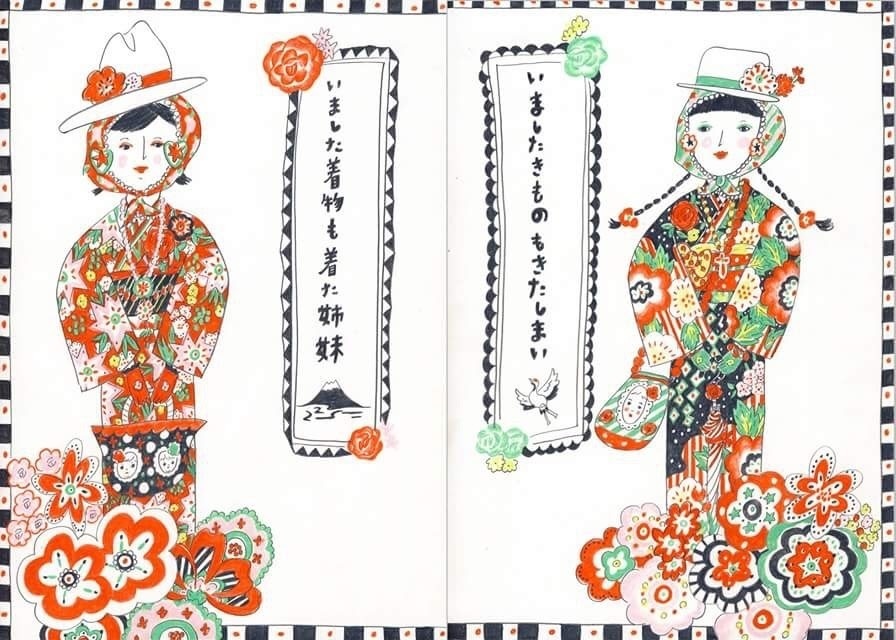 いましたきものもきたしまい
いました着物も着た姉妹